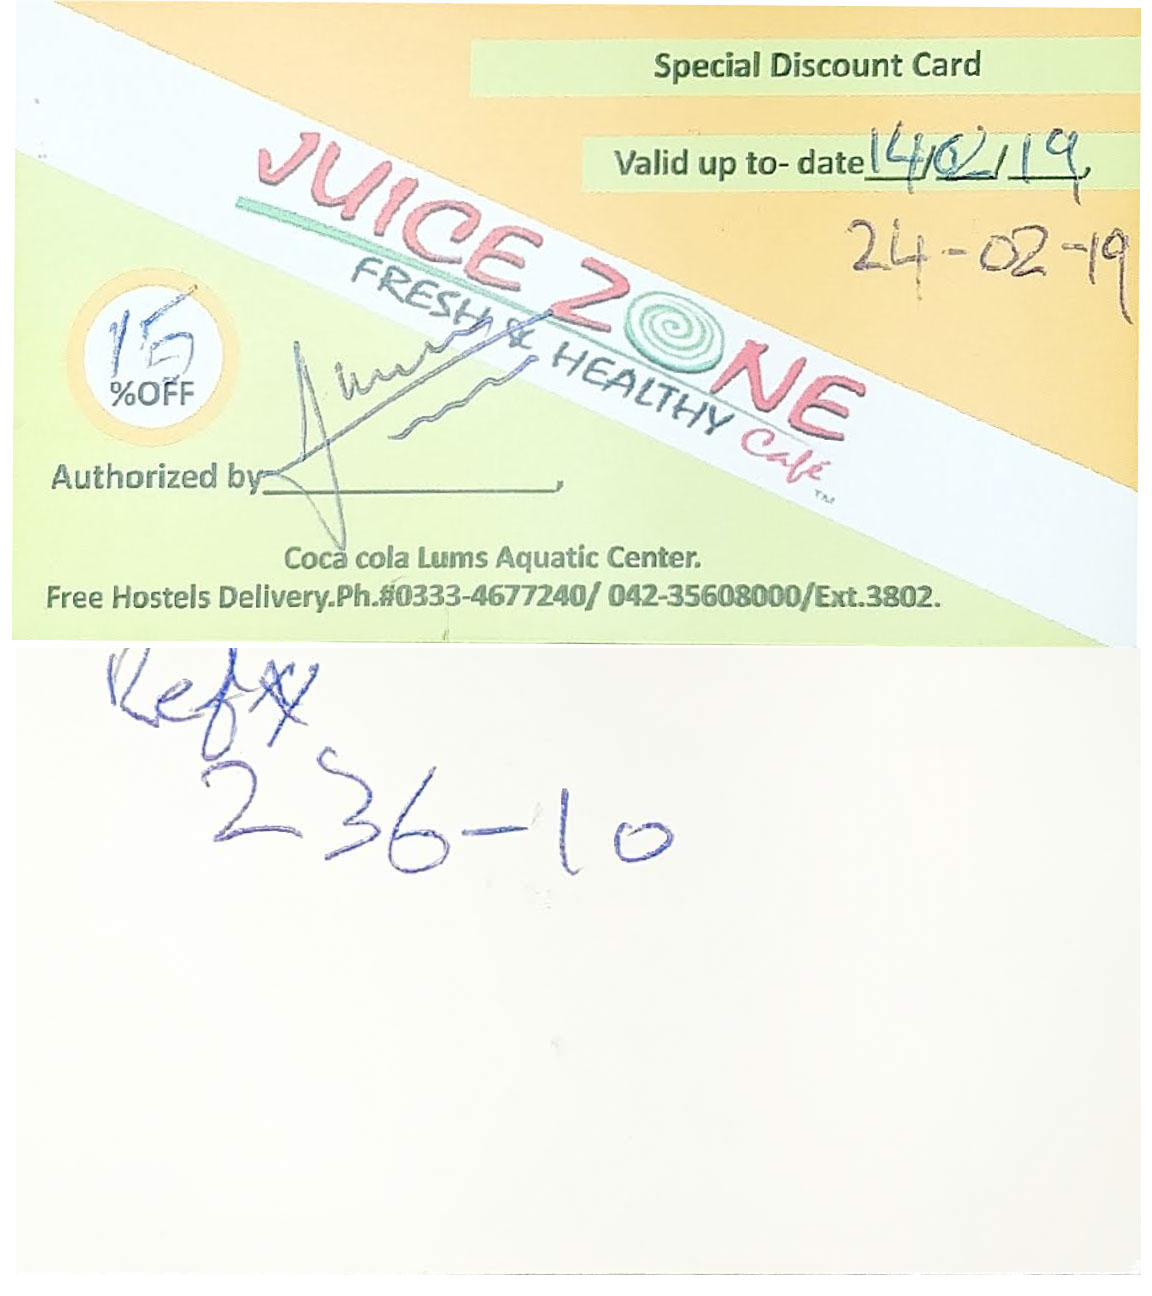 Special Discount Card
Valid up to- date 14/02/19
24-02-19
JUICE ZONE
FRESH & HEALTHY Café
TM
15
%OFF
Authorized by
Coca cola Lums Aquatic Center.
Free Hostels Delivery.Ph.#0333-4677240/ 042-35608000/Ext.3802.
Ref#
236-10